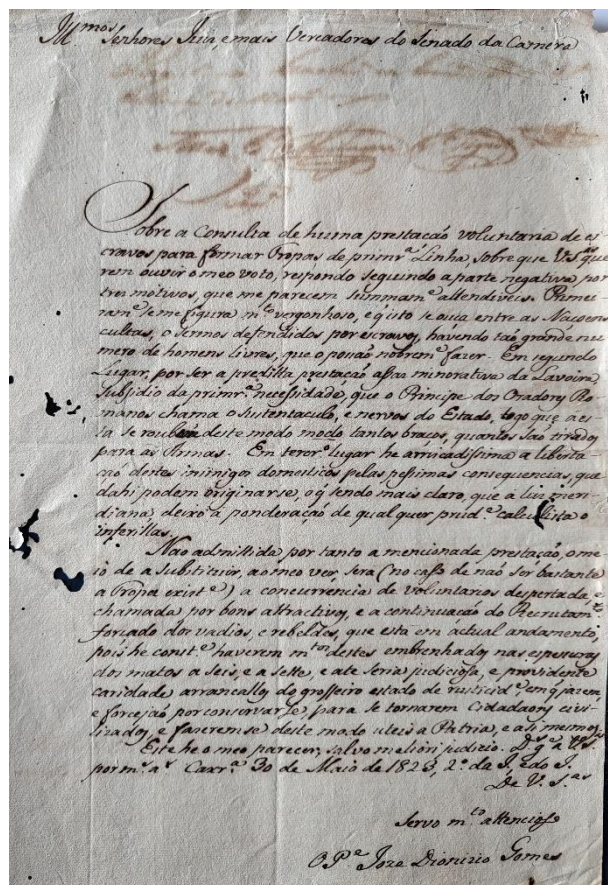 Ill.mos Senhores Juiz, e mais Vereadores do Senado da Camera
Sobre a Consulta de huma prestacaõ voluntaria de es-
cravos para formar Tropas de primr.a Linha, sobre que V.S.as que
rem ouvir o meo voto, respondo seguindo a parte negativa por
tres motivos, que me parecem summam.e attendiveis. Primei
ram.e se me figura m.to vergonhoso, e q isto se ouça entre as Nacoens
cultas, o sermos defendidos por escravos, havendo taõ grande nu
mero de homens livres, que o possaõ nobrem.e fazer. Em segundo
Lugar, por ser a preditta prestacaõ assas minorativa da Lavoira,
Subsidio da primr.a necessidade, que o Principe dos Oradores Ro
manos chama o Sustentaculo, e nervos do Estado, logo que a es-
ta se roubem deste modo modo tantos braços, quantos saõ tirados
para as Armas. Em tercr.o lugar he arriscadissima a liberta-
caõ destes inimigos domesticos pelas pessimas consequencias, que
dahi podem originarse, o q sendo mais claro, que a luz meri-
diana, deixo á ponderaçaõ de qualquer prud.e calculista o
inferillas.
Naõ admittida por tanto a mencionada prestaçaõ, o me
io de a substituir, ao meo ver, sera (no caso de naõ ser bastante
a Tropa exist.e) a concurrencia de voluntarios despertada, e
chamada por bons attractivos, e a continuacaõ do Recrutam.to
forcado dos vadios, e rebeldes, que esta em actual andamento,
pois he const.e haverem m.tos destes embrenhados nas espessuras
dos matos a seis, e a sette, e ate seria judiciosa, e providente
caridade arrancallos do grosseiro estado de rusticid.e em q jazem,
e forcejaõ por conservarse, para se tornarem Cidadaons civi-
lizados, e fazerem se deste modo uteis a Patria, e a si mesmos.
Este he o meo parecer, salvo meliori judicio. D.s g.e a V.S.as
por m.s a.s Caxr.a 30 de Maio de 1823, 2.o da I. e do I.
De V. S.as
Servo m.to attencioso
O P.e Joze Dionizio Gomes